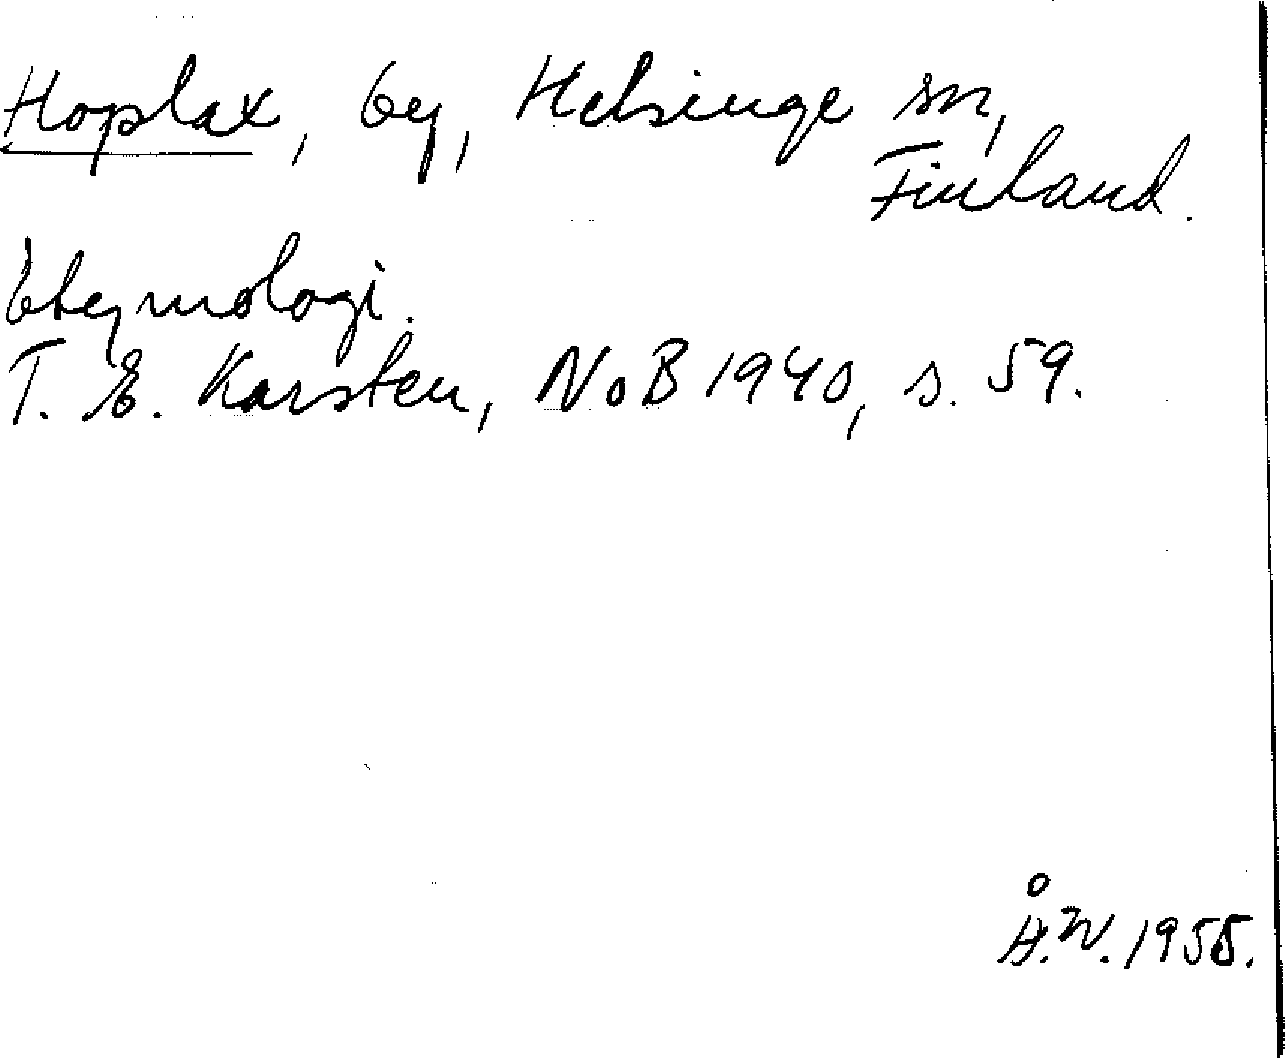 Hoplax, by, Helsinge sn,
Finland.
Etymologi.
T. E. Karsten, NoB 1940, s. 59.
Å.W. 1955.